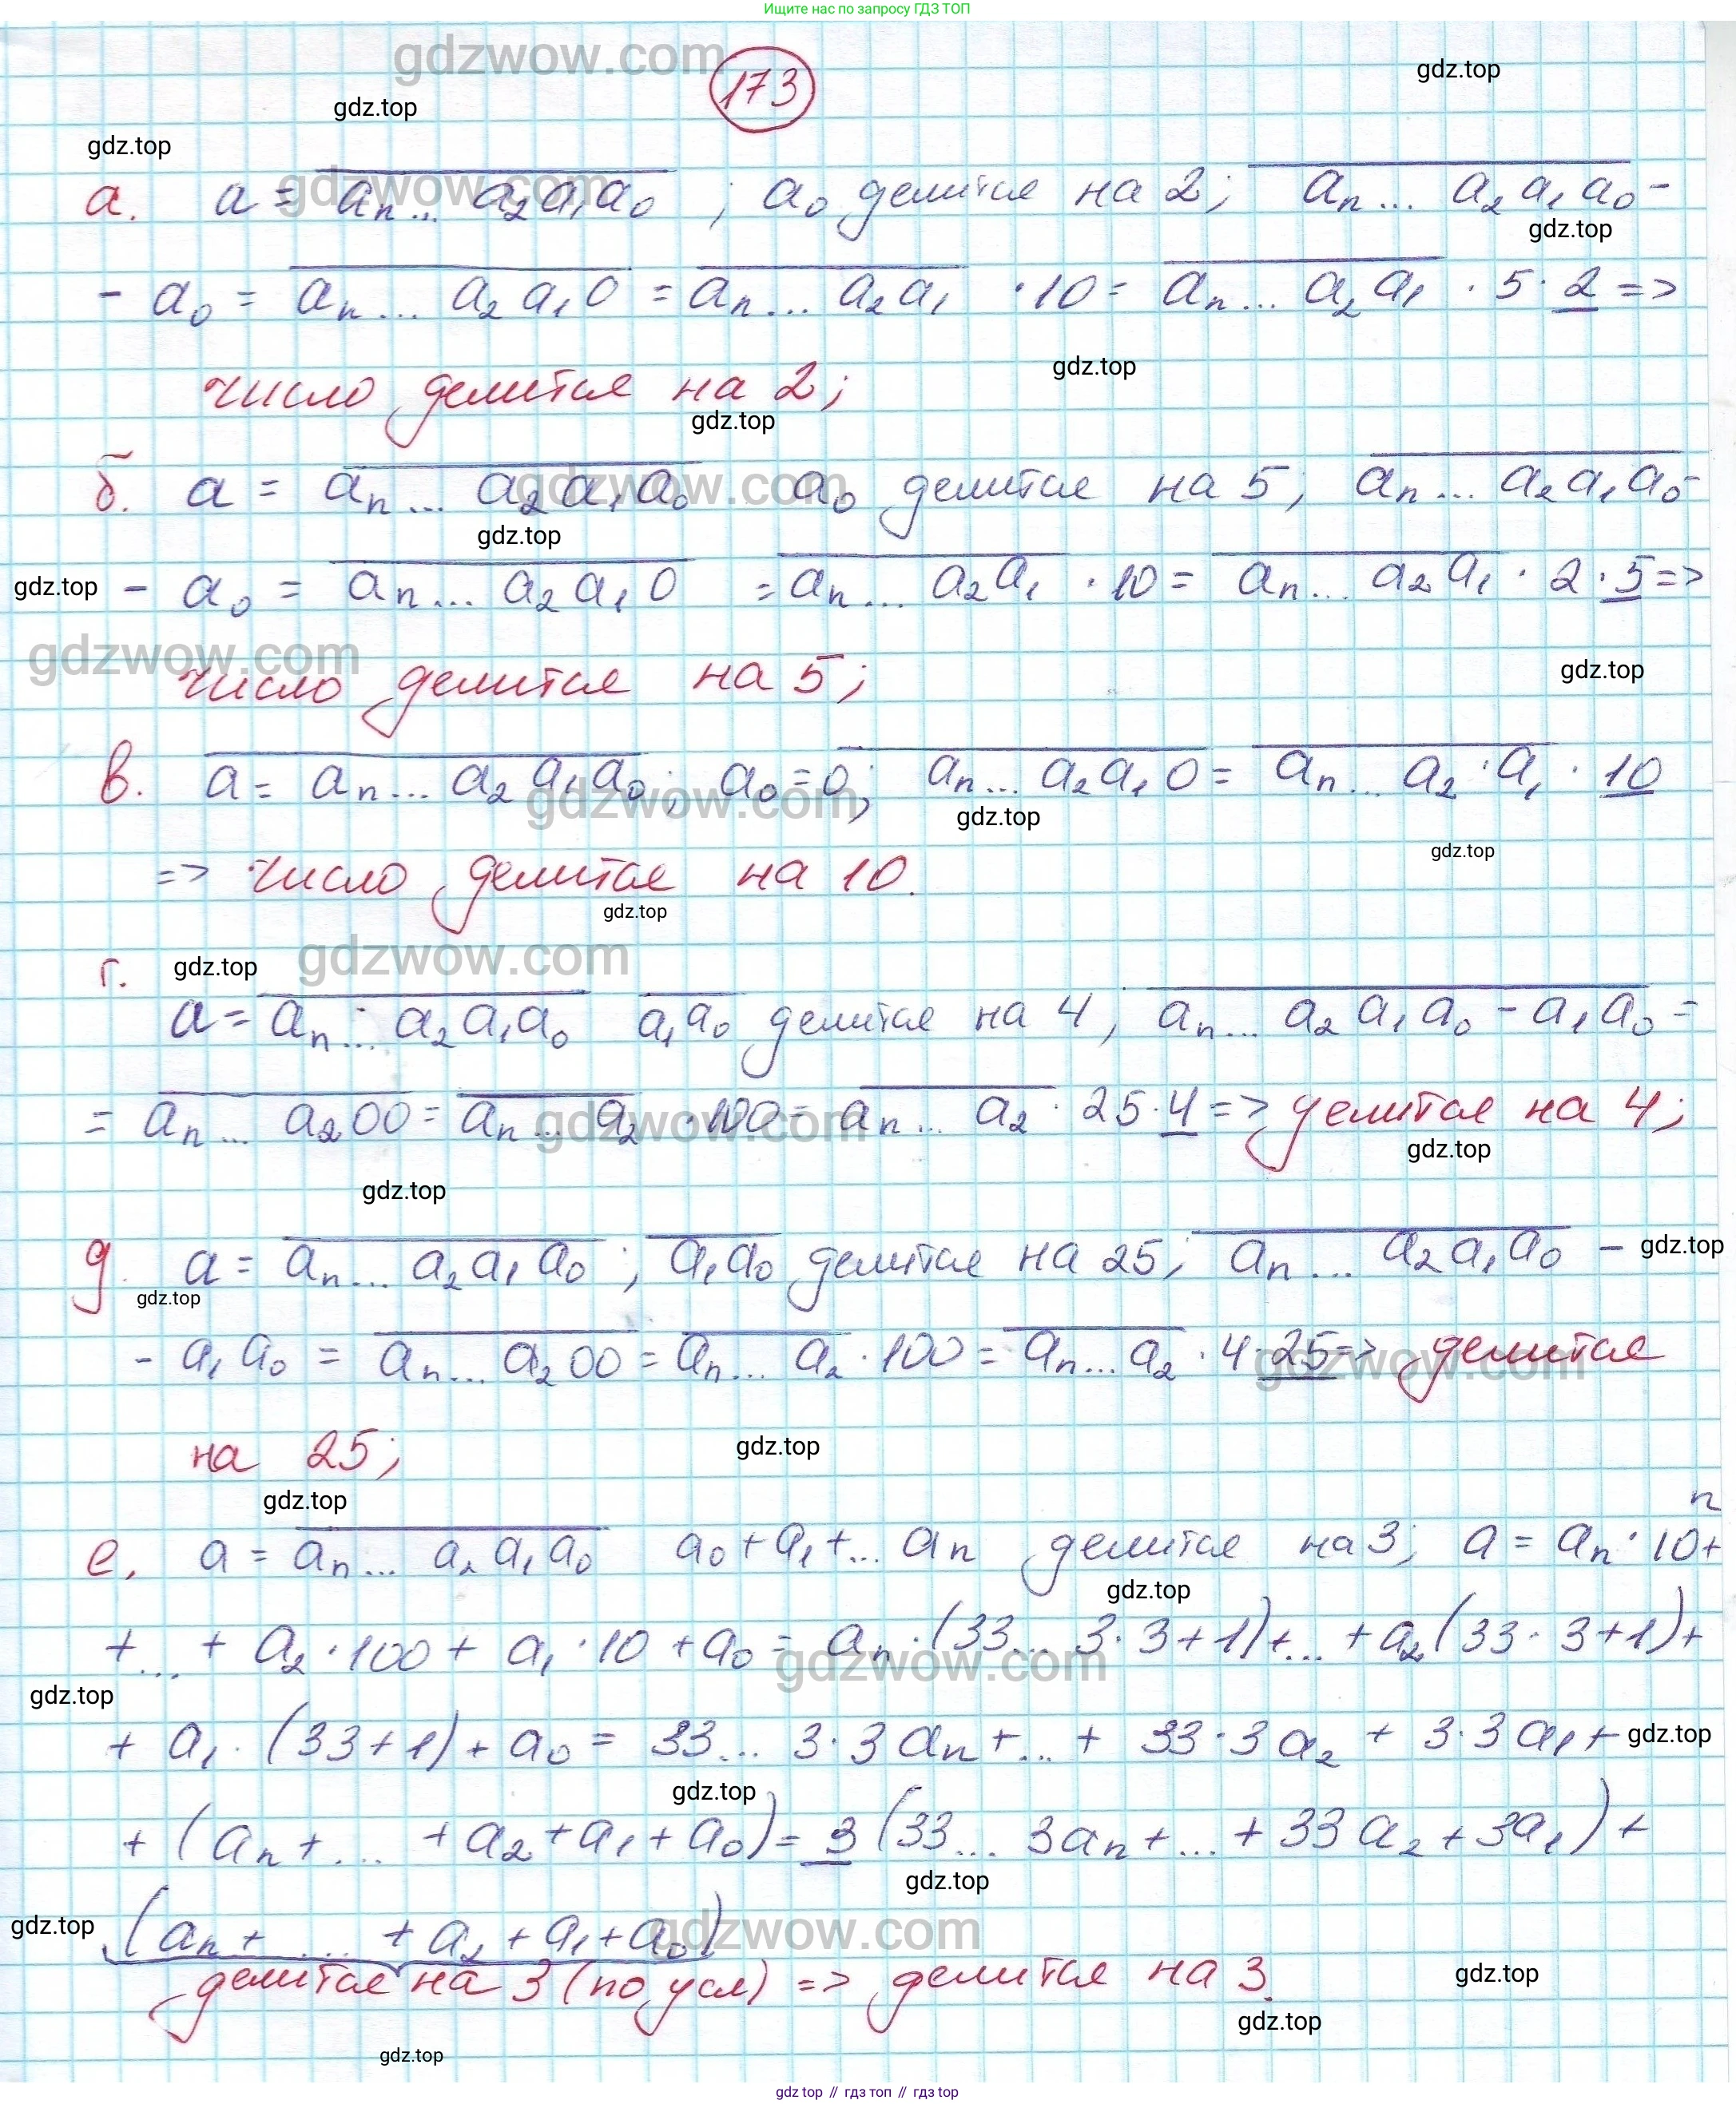 Ищите нас по запросу ГДЗ ТОП
gdzwow.com
173
gdz.top
gdz.top
gdz.top
а. a = \overline{a_n... a_2 a_1 a_0} ; a_0 делится на 2; \overline{a_n... a_2 a_1 a_0} -
gdzwow.com
gdz.top
- a_0 = \overline{a_n... a_2 a_1 0} = \overline{a_n... a_2 a_1} · 10 = \overline{a_n... a_2 a_1} · 5 · 2 =>
gdz.top
число делится на 2;
gdz.top
б. a = \overline{a_n... a_2 a_1 a_0} a_0 делится на 5; \overline{a_n... a_2 a_1 a_0} -
gdzwow.com
gdz.top
gdz.top
- a_0 = \overline{a_n... a_2 a_1 0} = \overline{a_n... a_2 a_1} · 10 = \overline{a_n... a_2 a_1} · 2 · 5 =>
gdzwow.com
gdz.top
число делится на 5;
в. \overline{a = a_n... a_2 a_1 a_0}; a_0 = 0; \overline{a_n... a_2 a_1 0} = \overline{a_n... a_2 · a_1} · 10
gdzwow.com
gdz.top
gdz.top
=> число делится на 10.
gdz.top
г.
gdz.top
gdzwow.com
a = \overline{a_n... a_2 a_1 a_0} \overline{a_1 a_0} делится на 4, \overline{a_n... a_2 a_1 a_0 - a_1 a_0} =
= \overline{a_n... a_2 00} = \overline{a_n... a_2} · 100 = \overline{a_n... a_2} · 25 · 4 => делится на 4;
gdzwow.com
gdz.top
gdz.top
д. a = \overline{a_n... a_2 a_1 a_0} ; \overline{a_1 a_0} делится на 25; \overline{a_n... a_2 a_1 a_0} -
gdz.top
gdz.top
- a_1 a_0 = \overline{a_n... a_2 00} = \overline{a_n... a_2} · 100 = \overline{a_n... a_2} · 4 · 25 => делится
gdzwow.com
на 25;
gdz.top
gdz.top
е. a = \overline{a_n... a_2 a_1 a_0} a_0 + a_1 + ... a_n делится на 3; a = a_n · 10^n +
gdz.top
+ ... + a_2 · 100 + a_1 · 10 + a_0 = a_n · (33... 3 · 3 + 1) + ... + a_2 (33 · 3 + 1) +
gdzwow.com
gdz.top
+ a_1 · (33 + 1) + a_0 = 33... 3 · 3 a_n + ... + 33 · 3 a_2 + 3 · 3 a_1 +
gdz.top
gdz.top
+ (a_n + ... + a_2 + a_1 + a_0) = 3 (33... 3a_n + ... + 33 a_2 + 3a_1) +
gdz.top
gdz.top
(a_n + ... + a_2 + a_1 + a_0)
gdzwow.com
делится на 3 (по усл) => делится на 3.
gdz.top
gdz.top
gdz.top
gdz top // гдз топ // гдз top